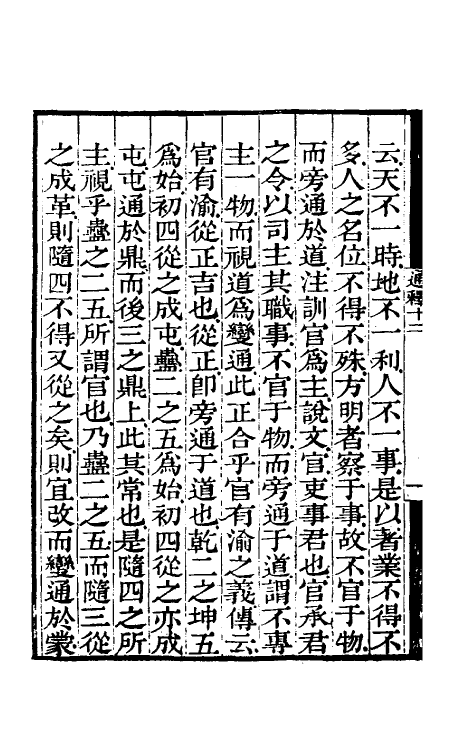 云天不一時地不一利人不一事是以著業不得不
多人之名位不得不殊方明者察于事故不官于物
而旁通於道注訓官爲主說文官吏事君也官承君
之令以司主其職事不官于物而旁通于道謂不專
主一物而視道爲變通此正合乎官有渝之義傳云
官有渝從正吉也從正卽旁通于道也乾二之坤五
爲始初四從之成屯蠱二之五爲始初四從之亦成
屯屯通於鼎而後三之鼎上此其常也是隨四之所
主視乎蠱之二五所謂官也乃蠱二之五而隨三從
之成革則隨四不得又從之矣則宜改而變通於蒙
通釋十二
一